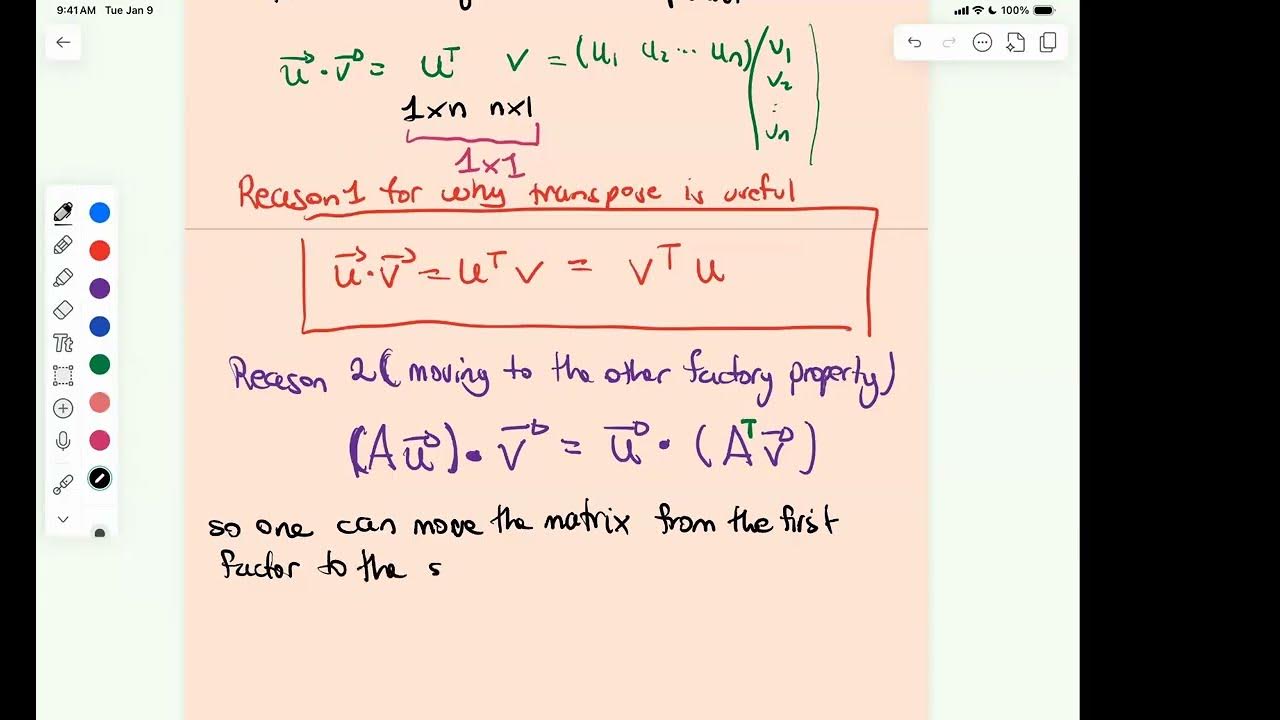 9:41 AM Tue Jan 9
100%
u⃗ · v⃗ = uᵀ v = (u₁ u₂ ... uₙ) (v₁
v₂
⋮
vₙ)
1×n n×1
1×1
Reason 1 for why transpose is useful
u⃗ · v⃗ = uᵀ v = vᵀ u
Reason 2 ( moving to the other factory property)
(A u⃗) · v⃗ = u⃗ · (Aᵀ v⃗)
so one can move the matrix from the first
factor to the s
Tt